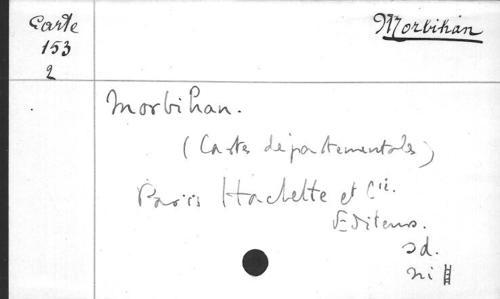 Carte
153
2
Morbihan
Morbihan.
(Cartes départementales)
Paris Hachette et Cie.
Editeurs.
sd.
ni